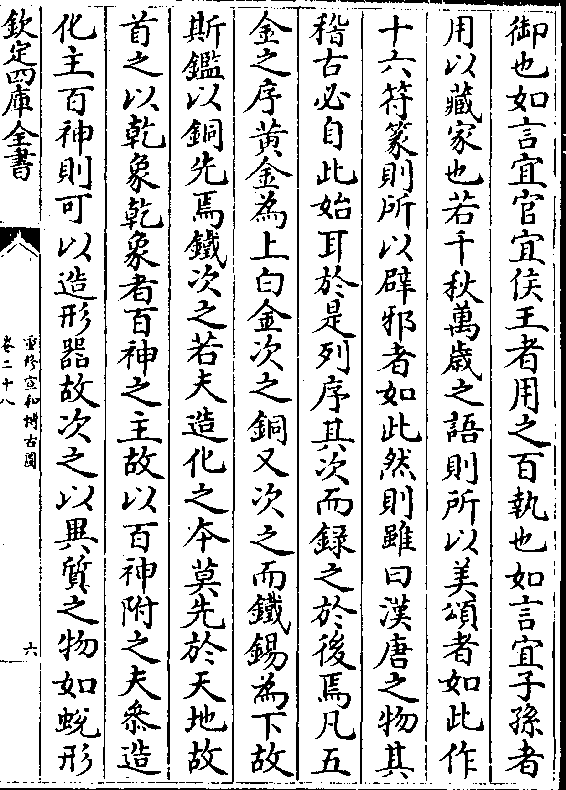 御也如言宜官宜侯王者用之百執也如言宜子孫者
用以藏家也若千秋萬歲之語則所以美頌者如此作
十六符篆則所以辟邪者如此然則雖曰漢唐之物其
稽古必自此始耳於是列序其次而録之於後焉凡五
金之序黄金為上白金次之銅又次之而鐵錫為下故
斯鑑以銅先焉鐵次之若夫造化之本莫先於天地故
首之以乾象乾象者百神之主故以百神附之夫叅造
化主百神則可以造形器故次之以異質之物如蛻形
欽定四庫全書
重修宣和博古圖
卷二十八
六